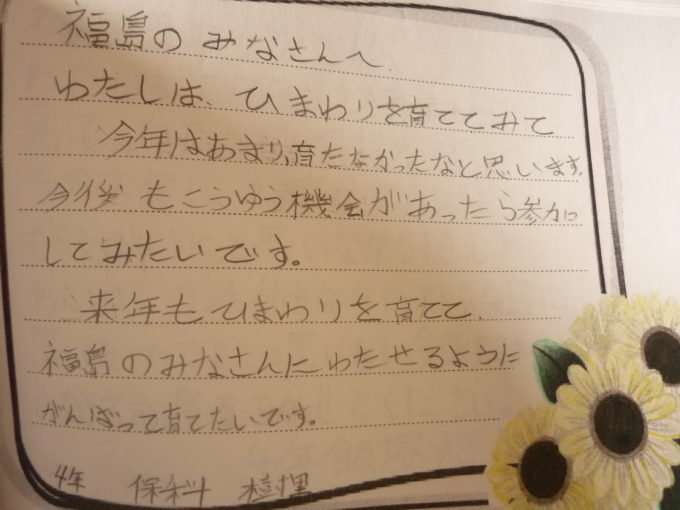 福島の みなさんへ
わたしは、ひまわりを育ててみて
今年はあまり、育たなかったなと思います。
今後もこうゆう機会があったら参加
してみたいです。
来年もひまわりを育てて、
福島のみなさんにわたせるように
がんばって育てたいです。
4年 保科 樹里